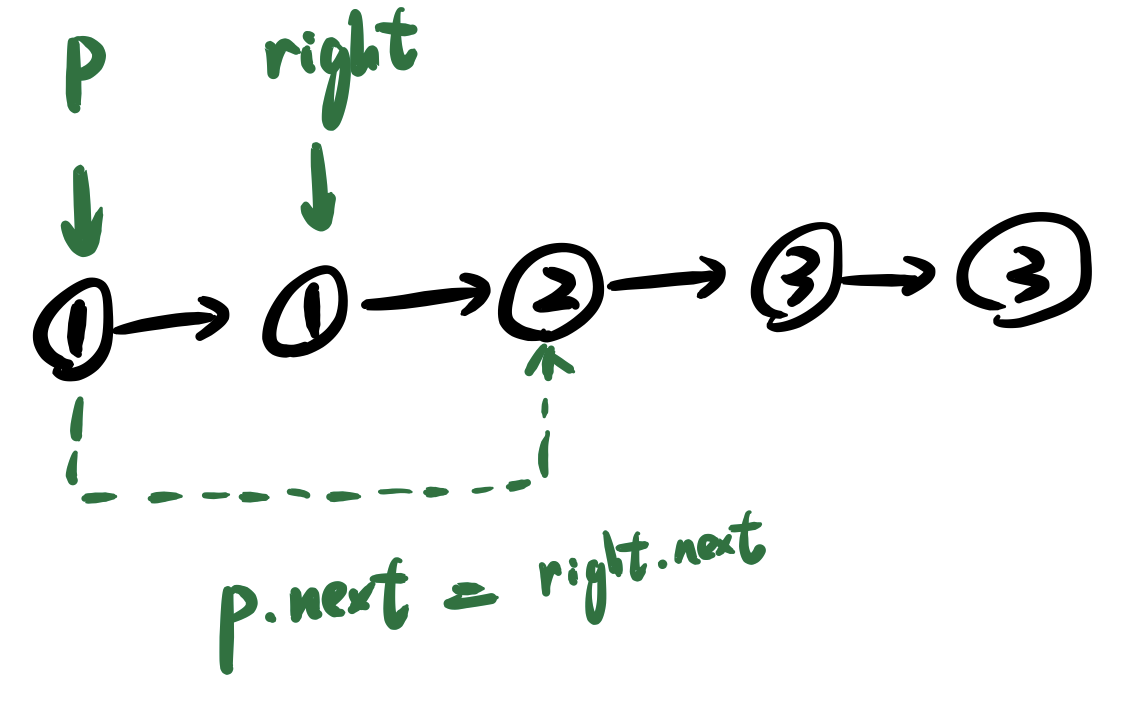 p right
1 1 2 3 3
p.next = right.next